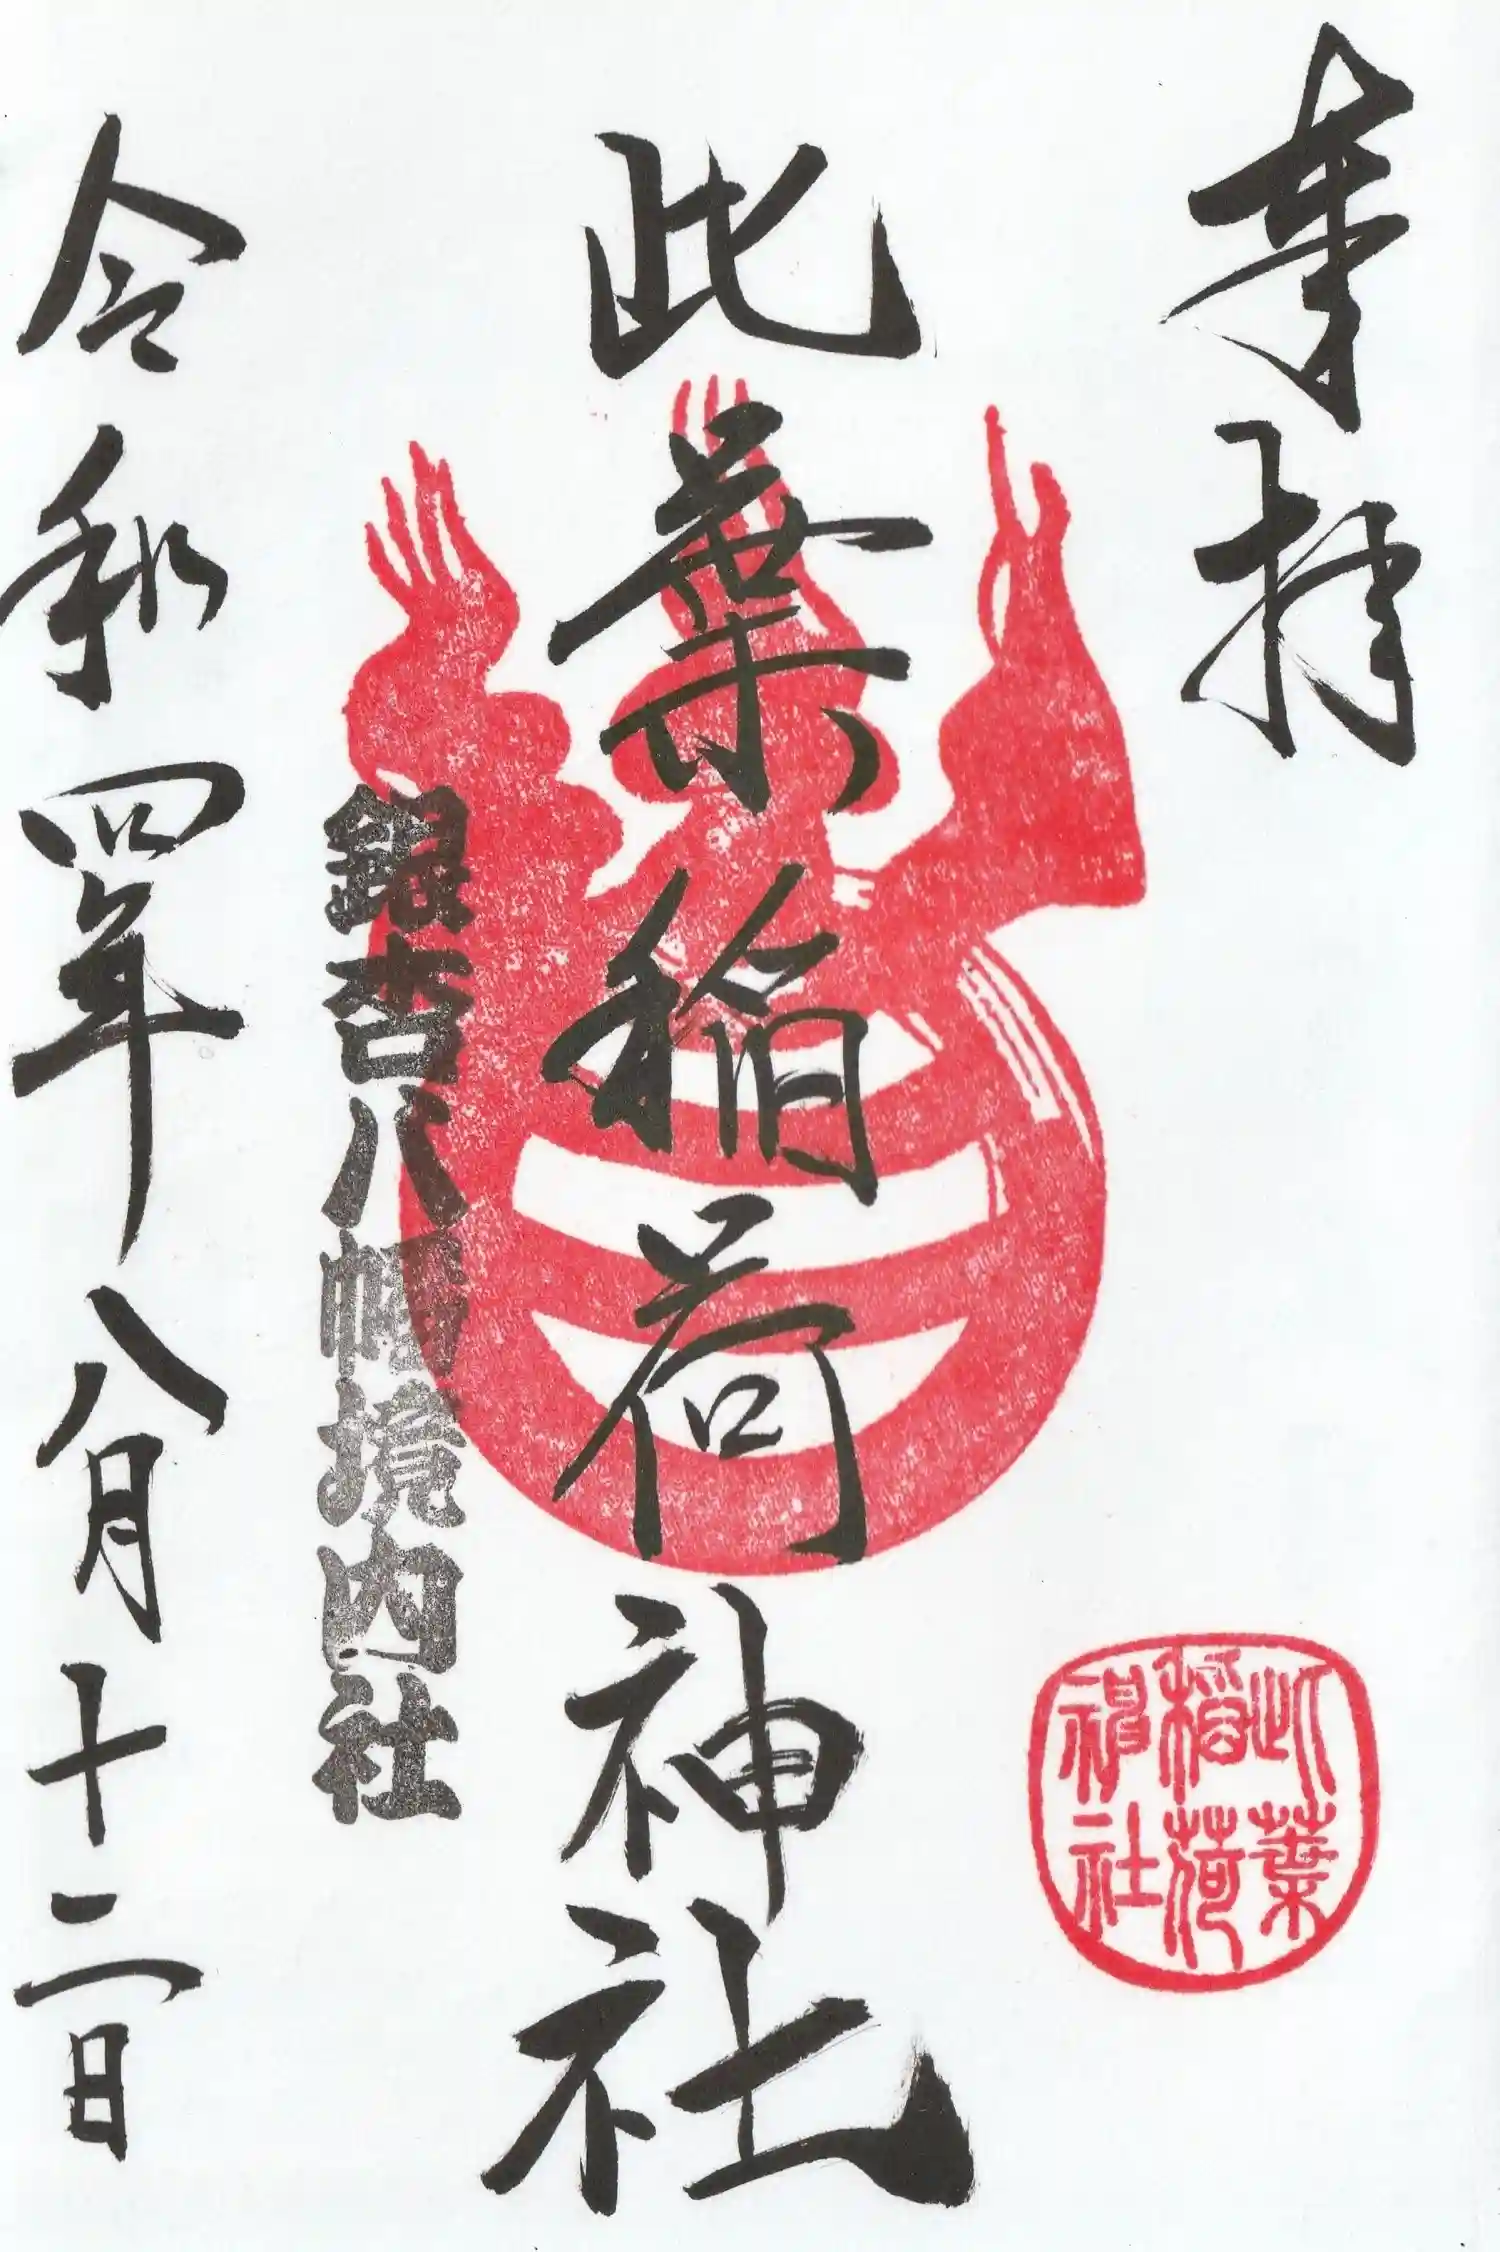 奉拝
此葉稲荷神社
此葉
稲荷
神社
銀杏八幡境内社
令和四年八月十二日